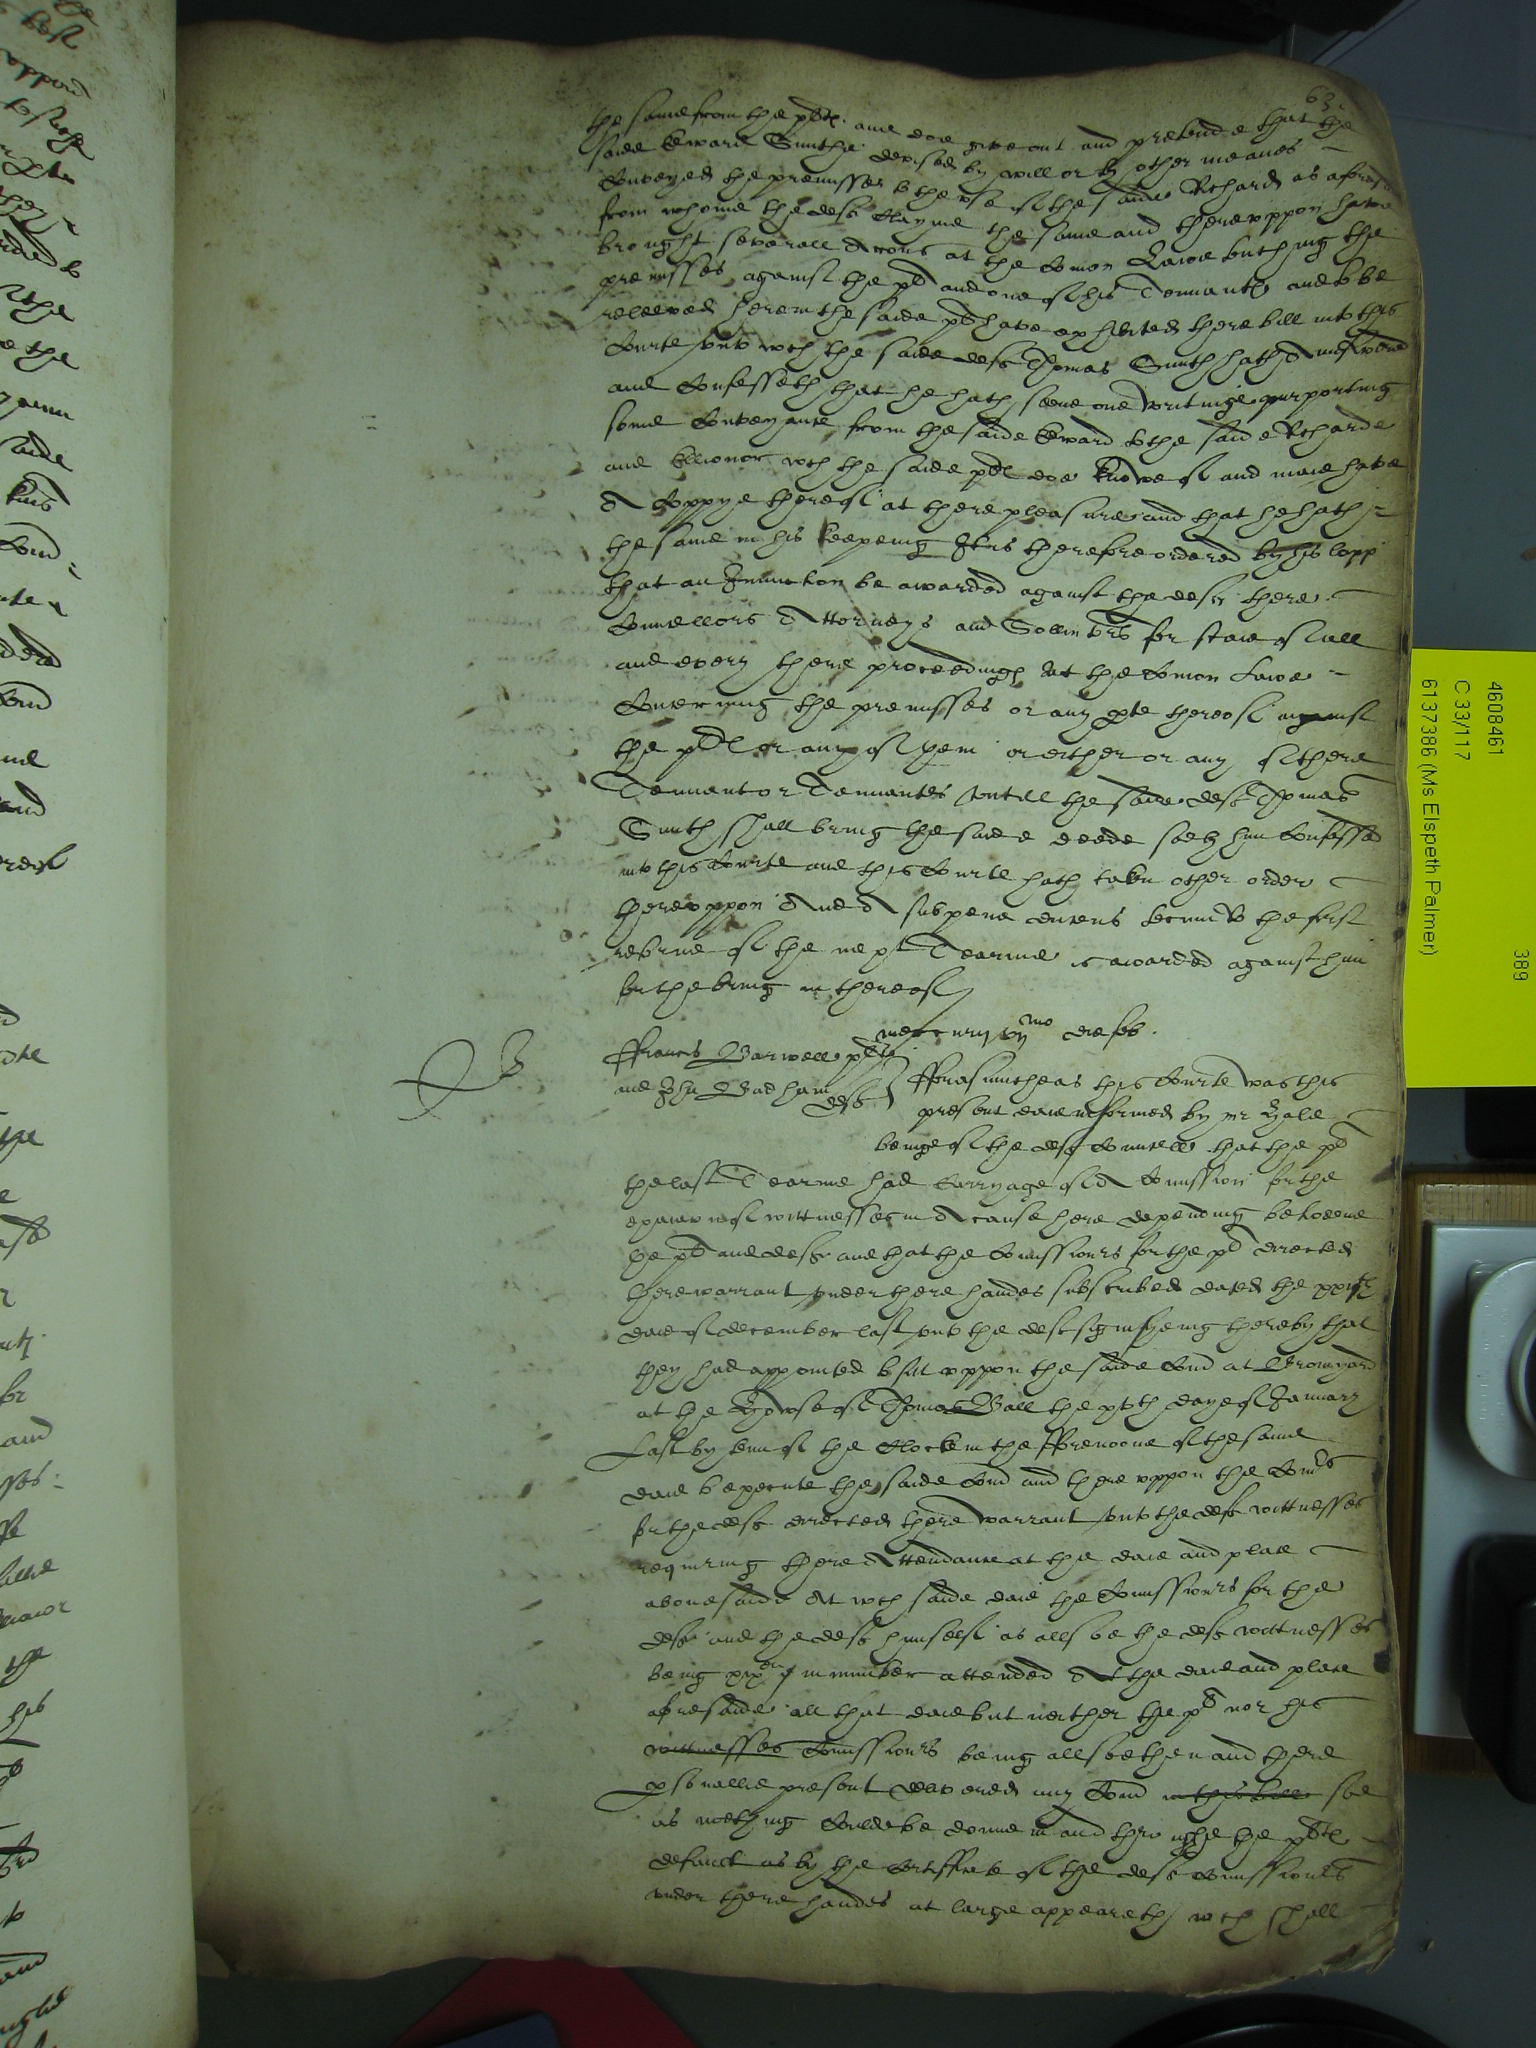 63
the same from the pltes. and doe give out and pretende that the
saide Edward Smithe devised by will or by other meanes
Conveyed the premisses to the use of the saide Richard as aforesd
from whome the deft Clayme the same and thereuppon have
brought severall Actions at the Comon Lawe touching the
premisses against the pl and one of his Tennants and to be
releeved herein the saide pl have exhibited there bill into this
Courte unto wch the saide deft Thomas Smith hath Answered
and Confesseth that he hath seene one writinge purporting
some Conveyance from the saide Edward to the saide Richarde
and Ellionor wch the saide pltes doe knowe of and maie have
A Coppye thereof at there pleasures and that he hath
the same in his keepeing It is therefore ordered by his lopp
that an Iniunction be awarded against the deftes there
Councellors Attorneys and Sollicitors for staie of all
and every there proceedings At the Comon Lawe
Concerning the premisses or any pte thereof against
the pltes or any of them or either or any of there
Tennant or Tennantes untill the saide deft Thomas
Smith shall bring the saide deede soe by him Confessed
into this Courte and this Courte hath taken other order
thereuppon And A subpena ducens tecum to the first
retorne of the next Tearme is awarded against him
for the bring in thereof
mercurij vijmo die feb.
B
Francis Barwell plte
and John Badham deft
Forasmuche as this Courte was this
present daie informed by mr Hale
beinge of the deftes Councell that the pl
the last Tearme had Carryage of A Comission for the
examincon of wittnesses in A cause here depending betweene
the pl and deft and that the Comissioners for the pl directed
there warrant under there handes subscribed dated the xxvjth
daie of december last unto the deft signifyeing thereby that
they had appointed to sitt uppon the saide Comd at Bromyard
at the Howse of Thomas Wall the xvth daye of January
Last by tenn of the Clocke in the fforenoone of the same
daie to execute the saide Comd and there uppon the Comrs
for the deft directed there warrant unto the deftes wittnesses
requiring there Attendance at the daie and place
abovesaide At wch saide daie the Comissioners for the
deft and the deft himself as allsoe the deftes wittnesses
being xixen in number attended At the daie and place
aforesaide all that daie but neither the pl nor his
wittnesses Comissioners being allsoe then and there
psonallie present delivered any Comd in this bill soe
as nothing Coulde be donne in and throughe the pltes
default as by the Certificate of the deftes Comissioners
under there handes at large appeareth wch shall
4608461
C 33/117
6137386 (Ms Elspeth Palmer)
389